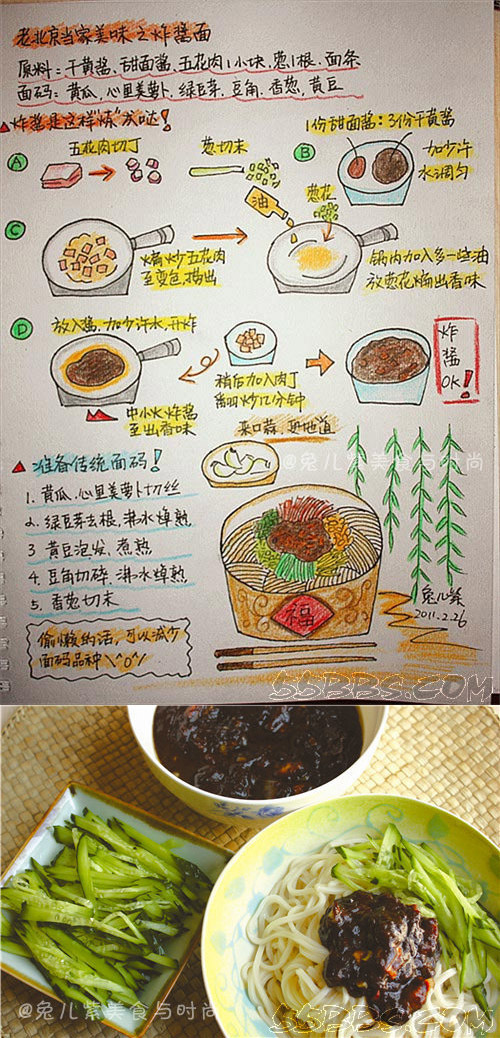 老北京当家美味之炸酱面
原料:干黄酱、甜面酱、五花肉1小块、葱1根、面条
面码:黄瓜、心里美萝卜、绿豆芽、豆角、香葱、黄豆
炸酱是这样“炼”成哒!
A 五花肉切丁 葱切末
B 1份甜面酱:3份干黄酱
加少许
水调匀
C
油
葱花
煸炒五花肉
至变色,捞出
锅内加入多一些油
放葱花煸出香味
D 放入酱,加少许水,开炸
中小火炸酱
至出香味
稍后加入肉丁
翻炒几分钟
炸
酱
OK!
来口蒜,更地道
准备传统面码!
1. 黄瓜、心里美萝卜切丝
2. 绿豆芽去根,沸水焯熟
3 黄豆泡发、煮熟
4. 豆角切碎、沸水焯熟
5. 香葱切末
偷懒的话,可以减少
面码品种\^o^/
福
@兔儿紫美食与时尚
兔儿紫
2011.2.26
55BBS.COM
@兔儿紫美食与时尚
55BBS.COM